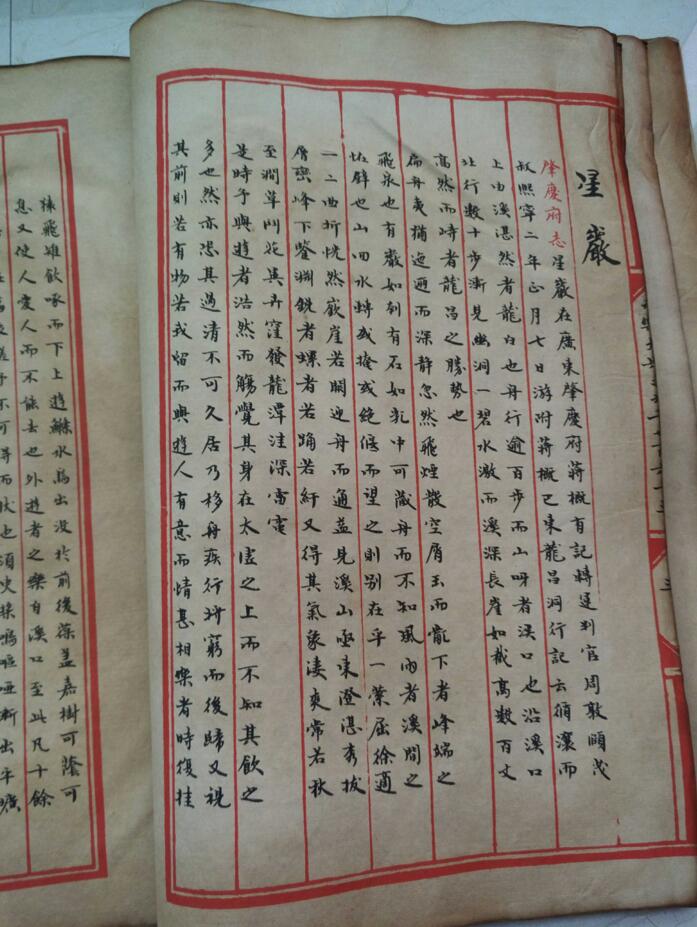 星巖
肇慶府志星巖在廣東肇慶府蔣概有記轉運判官周敦頤茂
叔熙寧二年正月七日游附蔣概己東龍昌洞行記云循瀼而
上由溪湛然者龍白也舟行逾百步而山呀者溪口也沿溪口
北行數十步漸見幽洞一碧水激而溪深長崖如截高數百丈
高然而峙者龍昌之勝勢也
扁舟夷猶迤邐而深靜忽然飛煙散空屑玉而霏下者峰端之
飛泉也有巖如剡有石如乳中可藏舟而不知風雨者溪間之
怪僻也山回水轉或掩或絕俛而望之則別在乎一縈屈徐適
一二曲折恍然嵌崖若闢迎舟而通益見溪山亟東澄湛秀拔
層巒峰下瑩淵銳者螺者若踊若紆又得其氣象淒爽常若秋
至澗草門花異卉窪發龍潭洼深雷電
是時予與遊者浩然而觴覺其身在太虛之上而不知其飲之
多也然亦恐其過清不可久居乃移舟疾行將窮而後歸又視
其前則若有物若我留而與遊人有意而情甚相樂者時復挂
猿飛雄飲啄而下上遊鯈水鳥出沒於前後葆蓋嘉樹可蔭可
息又使人愛人而不能去也外遊者之樂自溪口至此凡十餘
不可得而狀也須臾猿鳴啞啞漸出乎曠